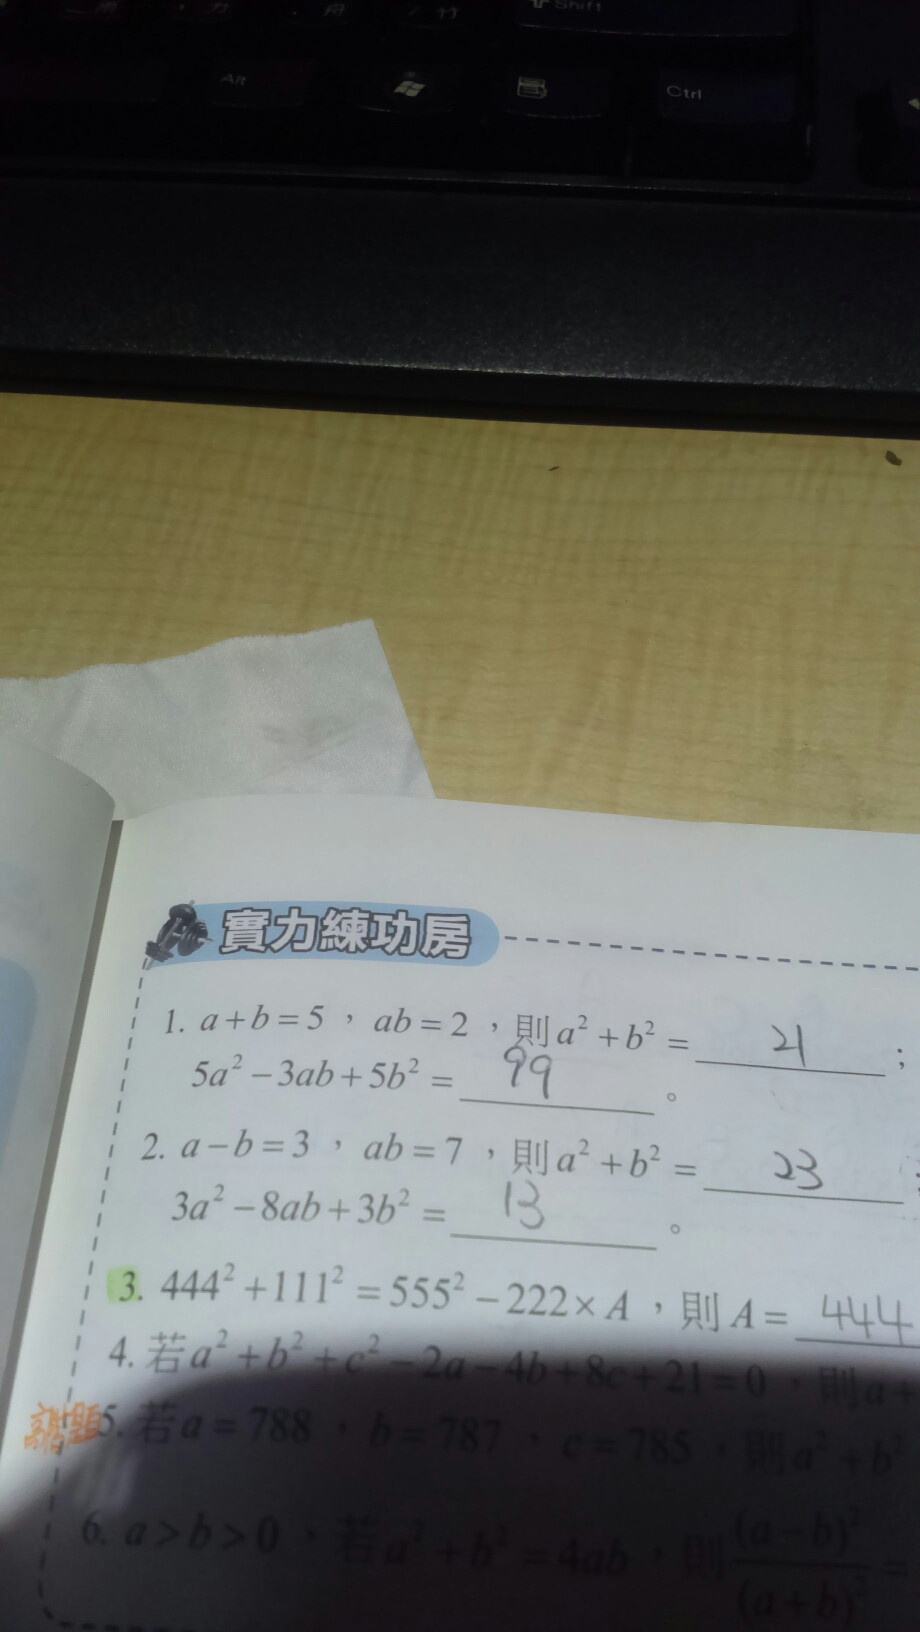 Shift
Alt
Ctrl
實力練功房
1. a+b=5，ab=2，則a²+b²= 21 ；
5a²-3ab+5b²= 99 。
2. a-b=3，ab=7，則a²+b²= 23
3a²-8ab+3b²= 13 。
3. 444²+111²=555²-222×A，則A= 444
4. 若a²+b²+c²-2a-4b+8c+21=0，則a+
5. 若a=788，b=787，c=785，則a²+b²
6. a>b>0，若a²+b²=4ab，則(a-b)²/(a+b)²=